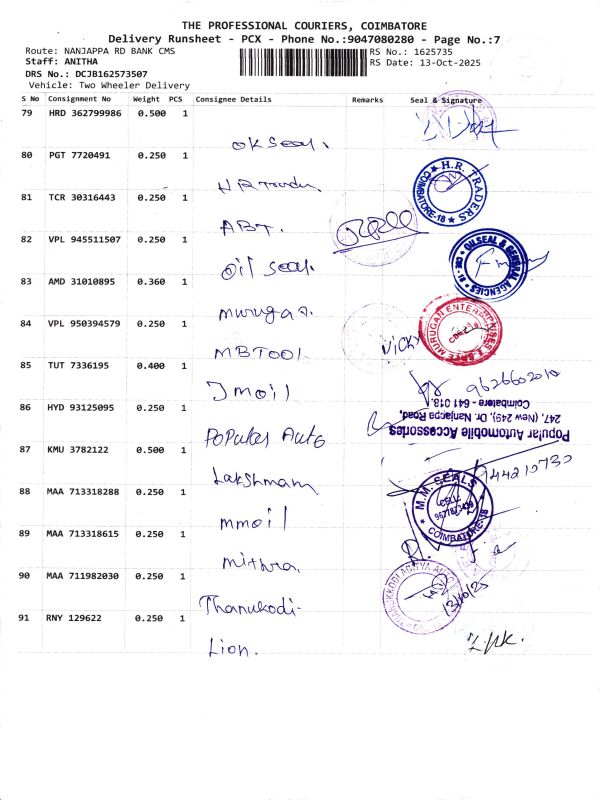 THE PROFESSIONAL COURIERS, COIMBATORE
Delivery Runsheet - PCX - Phone No.:9047080280 - Page No.:7
Route: NANJAPPA RD BANK CMS
RS No.: 1625735
Staff: ANITHA
RS Date: 13-Oct-2025
DRS No.: DCJB162573507
Vehicle: Two Wheeler Delivery
S No Consignment No Weight PCS Consignee Details Remarks Seal & Signature
79 HRD 362799986 0.500 1
OK Seal.
80 PGT 7720491 0.250 1
HR Traders
H.R. TRADERS
COIMBATORE-18
81 TCR 30316443 0.250 1
ABT.
82 VPL 945511507 0.250 1
Oil Seal.
OILSEAL & GENERAL AGENCIES
CBE - 18
83 AMD 31010895 0.360 1
Murugan.
MURUGAN ENTERPRISES
84 VPL 950394579 0.250 1
MBTool
Vicky
85 TUT 7336195 0.400 1
Jmoil
9626602010
86 HYD 93125095 0.250 1
Popular Auto
Popular Automobile Accessories
247, (New 249), Dr. Nanjappa Road,
Coimbatore - 641 018.
87 KMU 3782122 0.500 1
Lakshmam
88 MAA 713318288 0.250 1
mmoil
M.M. SEALS
CELL:
COIMBATORE-18
89 MAA 713318615 0.250 1
Mithra
90 MAA 711982030 0.250 1
Thanukodi
13/10/25
91 RNY 129622 0.250 1
Lion.